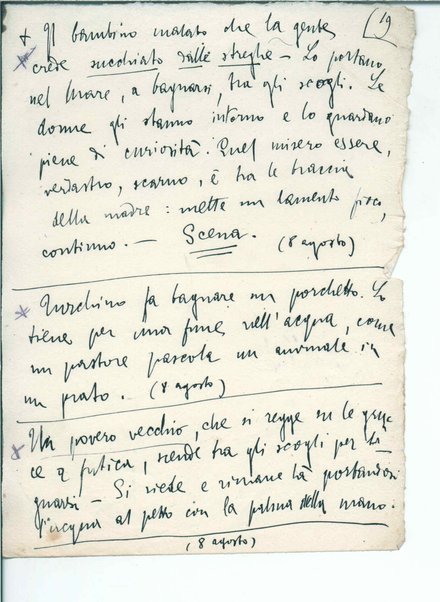 (19
+ Il bambino malato che la gente
crede succhiato dalle streghe – Lo portano
nel mare, a bagnarsi, tra gli scogli. Le
donne gli stanno intorno e lo guardano
piene di curiosità. Quel misero essere,
verdastro, scarno, è tra le braccia
della madre: mette un lamento fioco,
continuo. – Scena. (8 agosto)
Turchino fa bagnare un porchetto. Lo
tiene per una fune nell'acqua, come
un pastore pascola un animale in
un prato. (8 agosto)
Un povero vecchio, che si regge su le gruc-
ce a fatica, scende tra gli scogli per ba-
gnarsi – Si siede e rimane là portandosi
l'acqua al petto con la palma della mano.
(8 agosto)